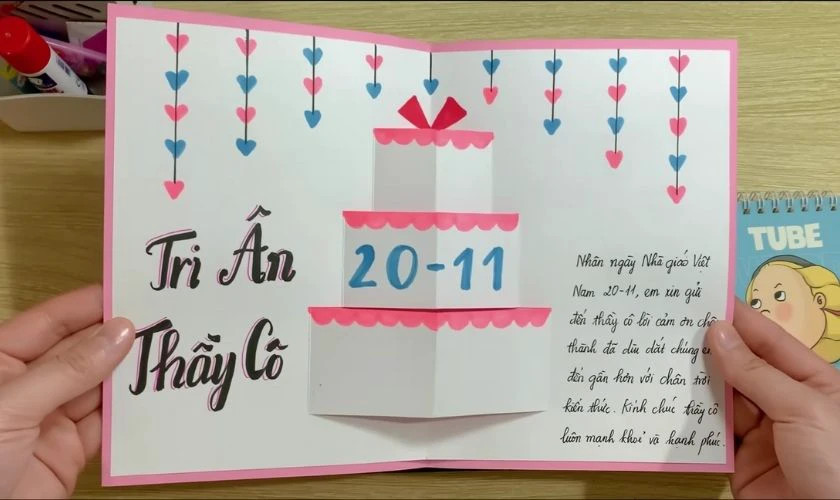 Tri Ân
Thầy Cô
20-11
Nhân ngày Nhà giáo Việt
Nam 20-11, em xin gửi
đến thầy cô lời cảm ơn
thành đã dìu dắt chúng
đến gần hơn với chân trời
kiến thức. Kính chúc thầy cô
luôn mạnh khoẻ và hạnh phúc.
TUBE